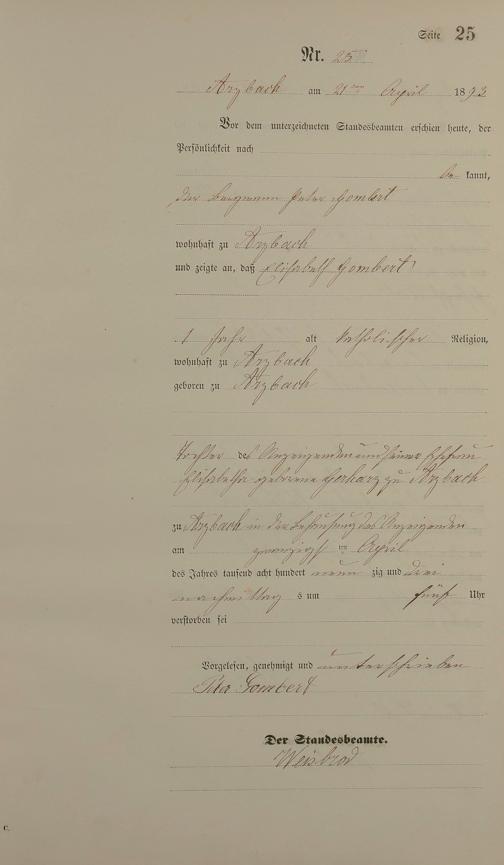 Seite 25
Nr. 25
Arzbach am 21ten April 1893
Vor dem unterzeichneten Standesbeamten erschien heute, der
Persönlichkeit nach
be kannt,
der Bergmann Peter Gombert
wohnhaft zu Arzbach
und zeigte an, daß Elisabeth Gombert
1 Jahr alt katholischer Religion,
wohnhaft zu Arzbach
geboren zu Arzbach
Tochter des Anzeigenden und seiner Ehefrau
Elisabetha geborene Gerharz zu Arzbach
zu Arzbach in der Behausung des Anzeigenden
am zwanzigsten April
des Jahres tausend acht hundert neun zig und drei
nachmittag s um fünf Uhr
verstorben sei
Vorgelesen, genehmigt und unterschrieben
Peter Gombert
Der Standesbeamte.
Weisbrod
C.